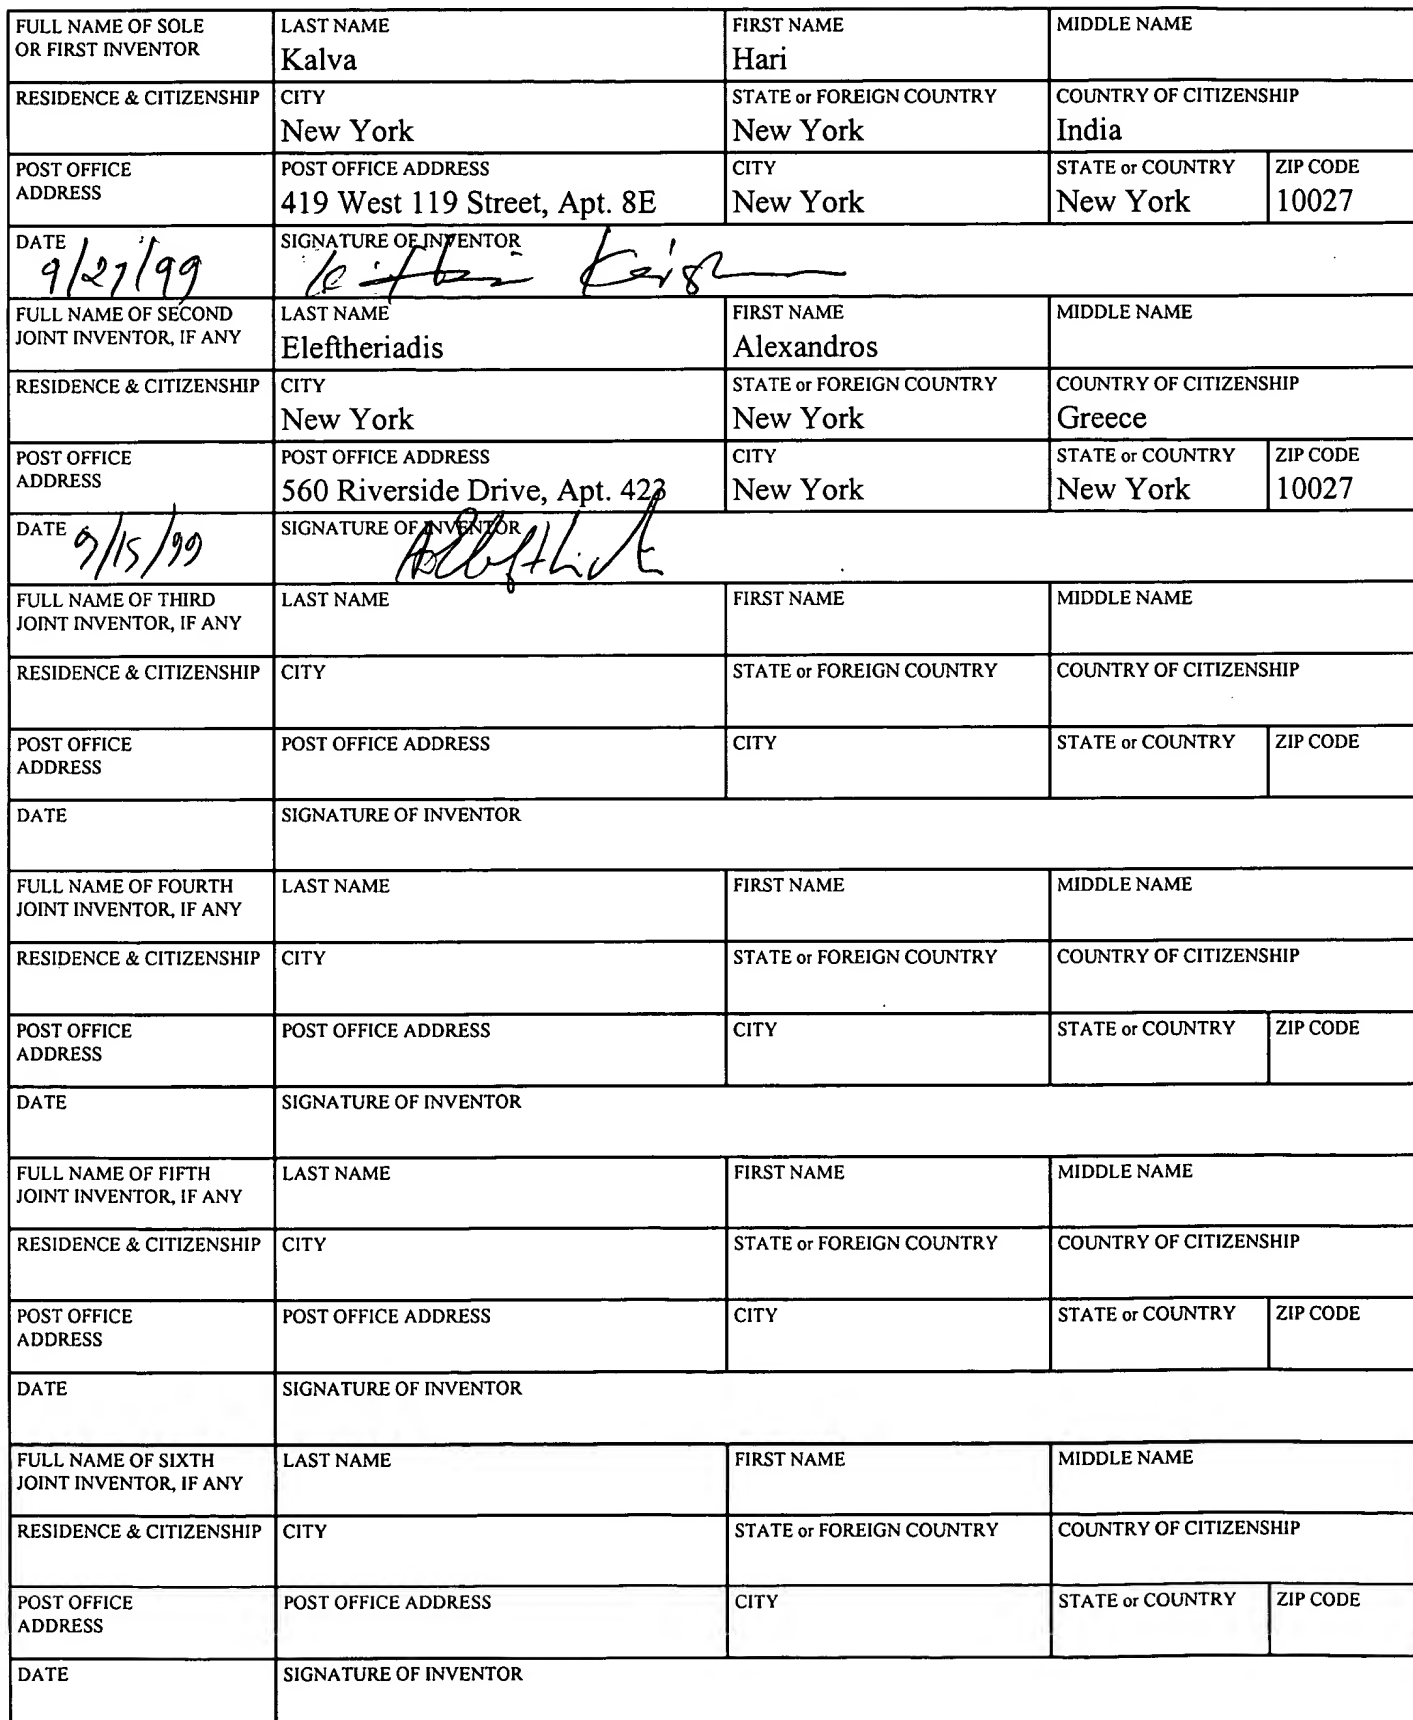 FULL NAME OF SOLE OR FIRST INVENTOR LAST NAME FIRST NAME MIDDLE NAME
Kalva Hari
RESIDENCE & CITIZENSHIP CITY STATE or FOREIGN COUNTRY COUNTRY OF CITIZENSHIP
New York New York India
POST OFFICE ADDRESS POST OFFICE ADDRESS CITY STATE or COUNTRY ZIP CODE
419 West 119 Street, Apt. 8E New York New York 10027
DATE SIGNATURE OF INVENTOR
9/27/99
FULL NAME OF SECOND JOINT INVENTOR, IF ANY LAST NAME FIRST NAME MIDDLE NAME
Eleftheriadis Alexandros
RESIDENCE & CITIZENSHIP CITY STATE or FOREIGN COUNTRY COUNTRY OF CITIZENSHIP
New York New York Greece
POST OFFICE ADDRESS POST OFFICE ADDRESS CITY STATE or COUNTRY ZIP CODE
560 Riverside Drive, Apt. 423 New York New York 10027
DATE SIGNATURE OF INVENTOR
9/15/99
FULL NAME OF THIRD JOINT INVENTOR, IF ANY LAST NAME FIRST NAME MIDDLE NAME
RESIDENCE & CITIZENSHIP CITY STATE or FOREIGN COUNTRY COUNTRY OF CITIZENSHIP
POST OFFICE ADDRESS POST OFFICE ADDRESS CITY STATE or COUNTRY ZIP CODE
DATE SIGNATURE OF INVENTOR
FULL NAME OF FOURTH JOINT INVENTOR, IF ANY LAST NAME FIRST NAME MIDDLE NAME
RESIDENCE & CITIZENSHIP CITY STATE or FOREIGN COUNTRY COUNTRY OF CITIZENSHIP
POST OFFICE ADDRESS POST OFFICE ADDRESS CITY STATE or COUNTRY ZIP CODE
DATE SIGNATURE OF INVENTOR
FULL NAME OF FIFTH JOINT INVENTOR, IF ANY LAST NAME FIRST NAME MIDDLE NAME
RESIDENCE & CITIZENSHIP CITY STATE or FOREIGN COUNTRY COUNTRY OF CITIZENSHIP
POST OFFICE ADDRESS POST OFFICE ADDRESS CITY STATE or COUNTRY ZIP CODE
DATE SIGNATURE OF INVENTOR
FULL NAME OF SIXTH JOINT INVENTOR, IF ANY LAST NAME FIRST NAME MIDDLE NAME
RESIDENCE & CITIZENSHIP CITY STATE or FOREIGN COUNTRY COUNTRY OF CITIZENSHIP
POST OFFICE ADDRESS POST OFFICE ADDRESS CITY STATE or COUNTRY ZIP CODE
DATE SIGNATURE OF INVENTOR